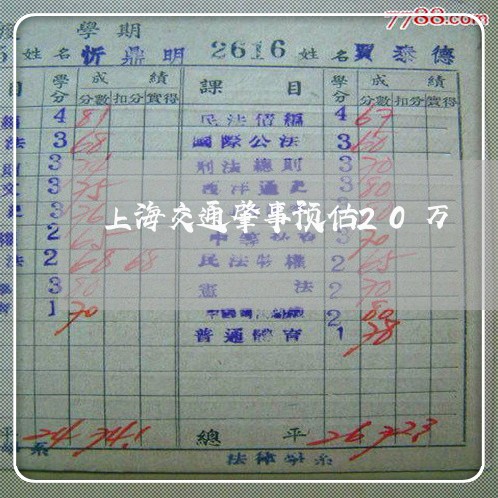 7788.com
學期
姓名 忻鼎明 2616 姓名 賈泰德
目 學分 成績 課目 學分 成績
分數 扣分 實得 分數 扣分 實得
4 81 民法債編 4 67
法 3 68 國際公法 3 60
3 刑法總則 3 70
3 75 西洋通史 3 80
3 76 3
上海交通肇事预估20万
權 2 65 3 70
法 2 68 68 民法物權 2 65
3 80 憲法 2 70
育 1 70 2 80
普通體育 1 78
平 24 74.1 總平 26 72.3
系 法律學系